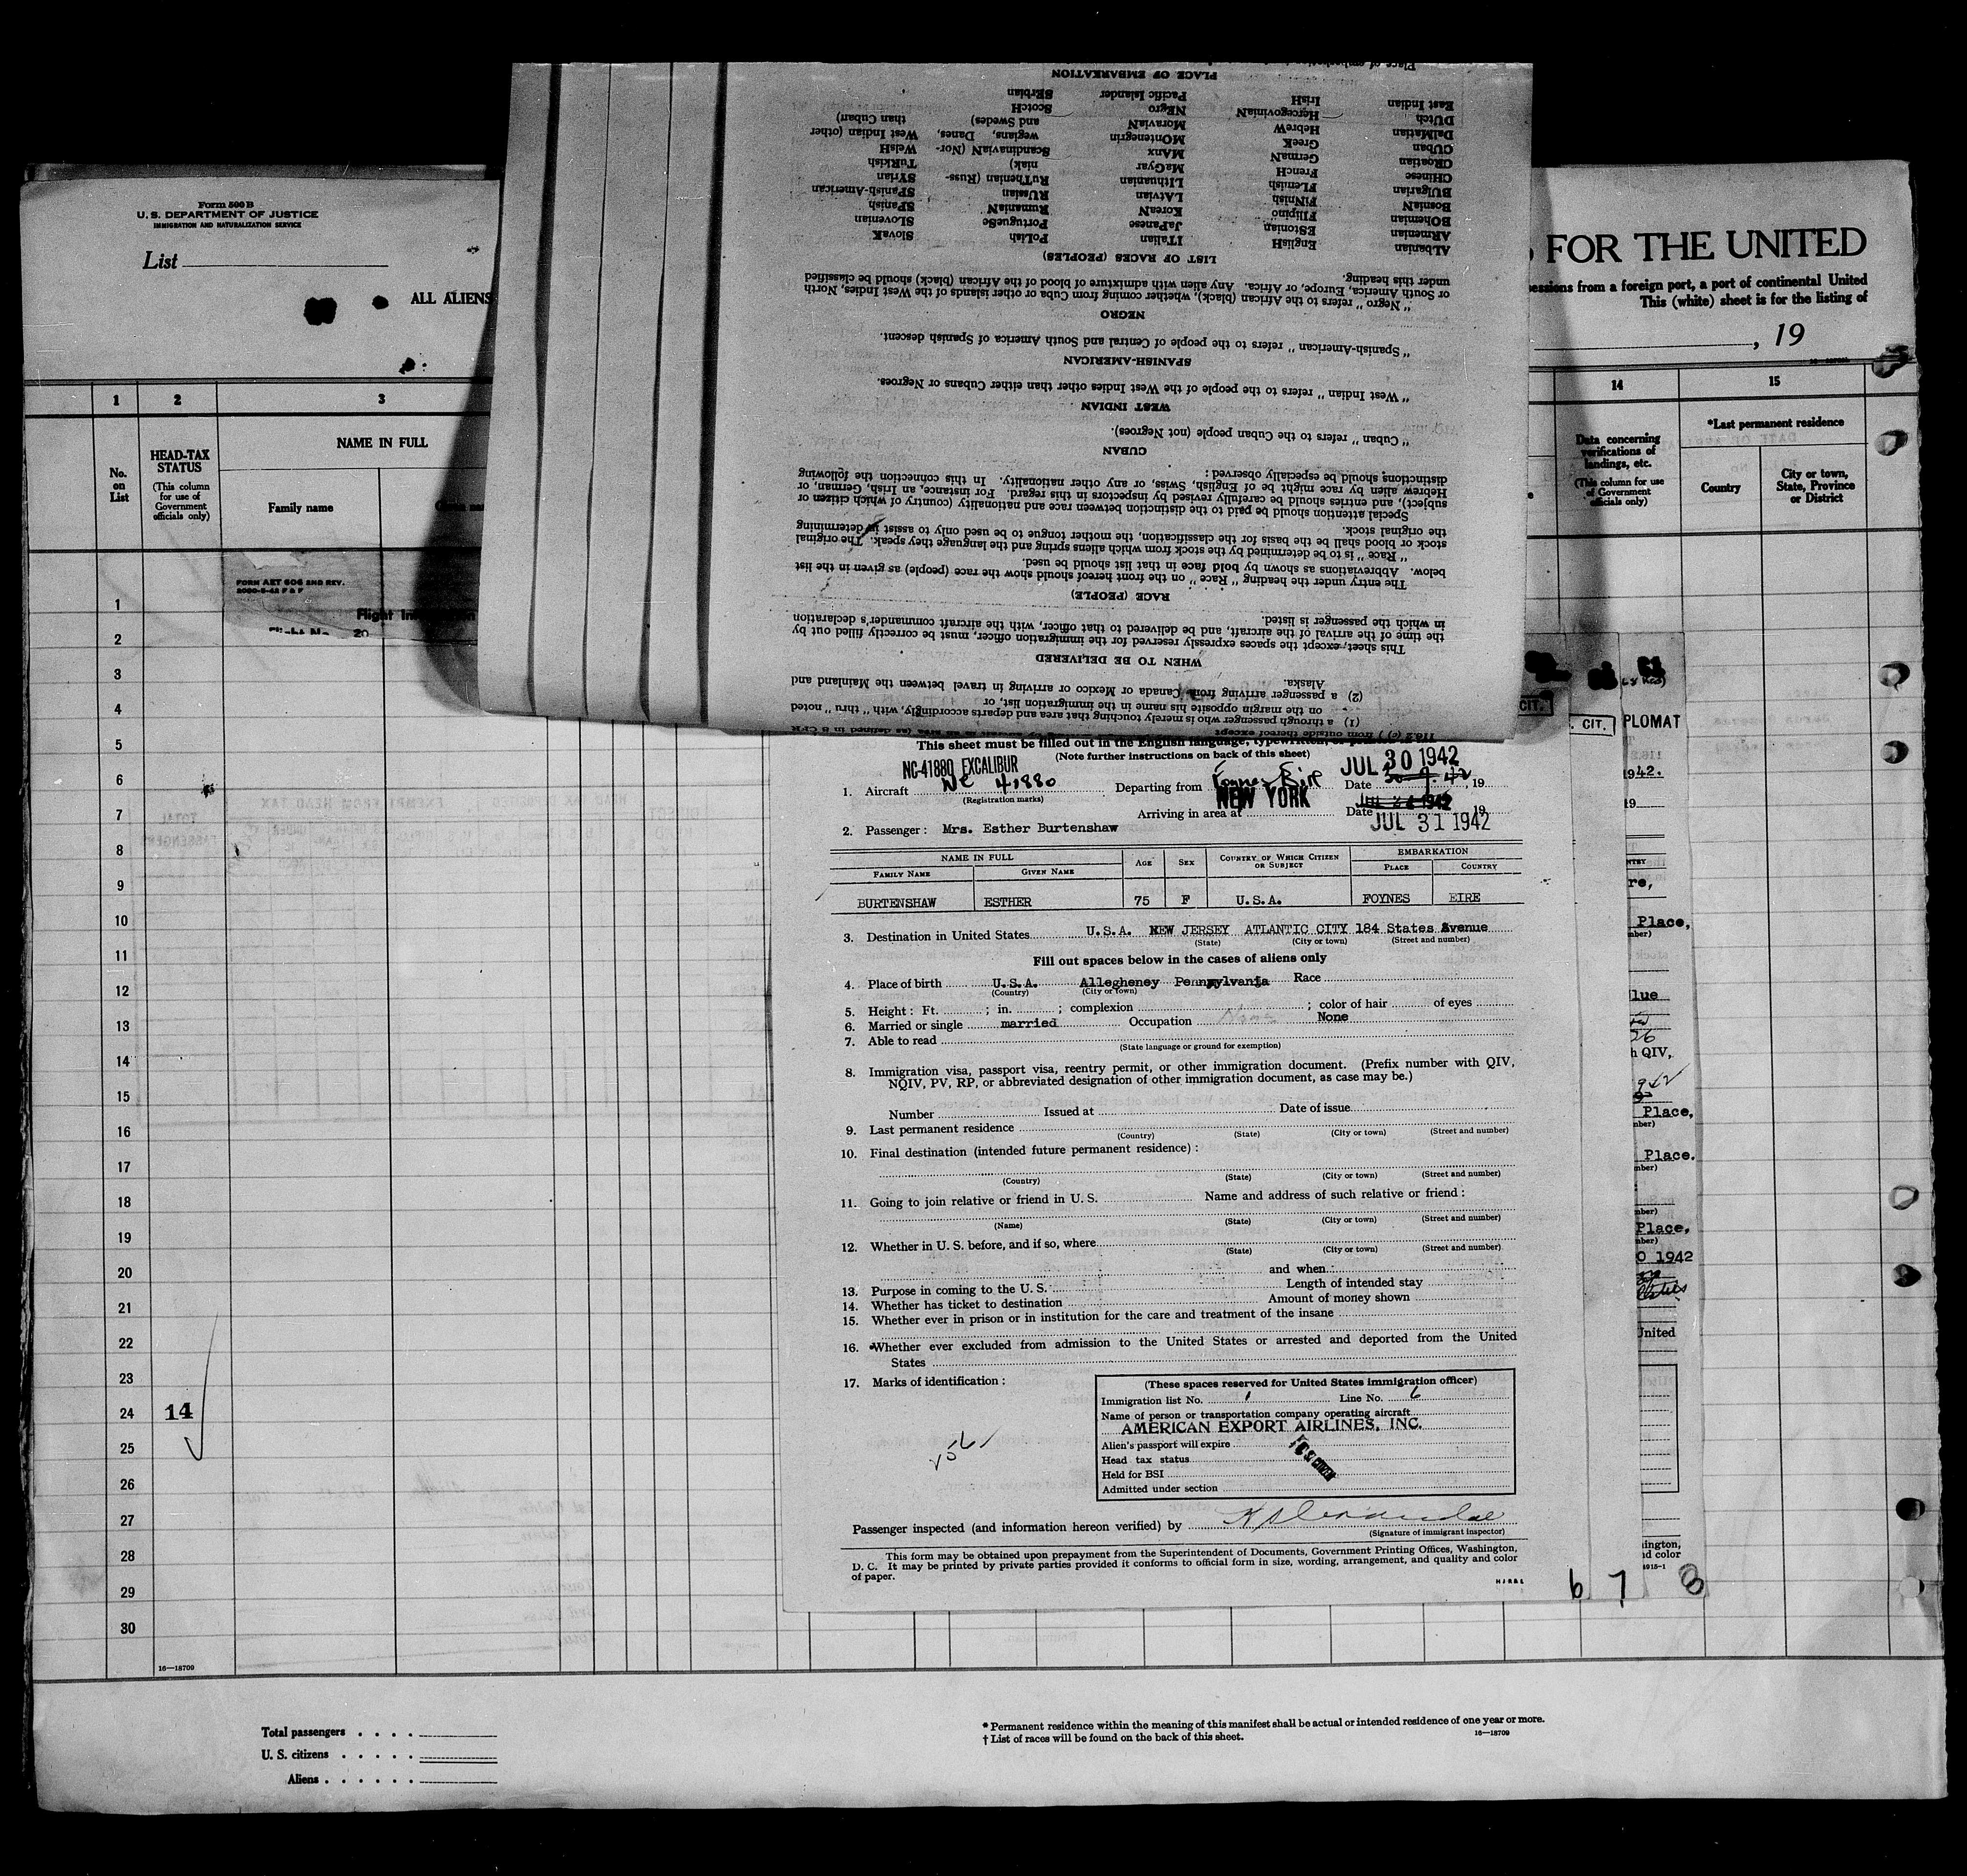 Form 500 B
U. S. DEPARTMENT OF JUSTICE
IMMIGRATION AND NATURALIZATION SERVICE
List
ALL ALIENS
FOR THE UNITED
essions from a foreign port, a port of continental United
This (white) sheet is for the listing of
, 19
1 2 3 14 15
No. on List
HEAD-TAX STATUS
(This column for use of Government officials only)
NAME IN FULL
Family name
Data concerning verifications of landings, etc.
(This column for use of Government officials only)
*Last permanent residence
Country
City or town, State, Province or District
FORM AET 606 2ND REV.
2000-5-42 F & F
Flight
20
1
2
3
4
5
6
7
8
9
10
11
12
13
14
15
16
17
18
19
20
21
22
23
24 14
25
26
27
28
29
30
16—18709
Total passengers . . . .
U. S. citizens . . . . .
Aliens . . . . . .
* Permanent residence within the meaning of this manifest shall be actual or intended residence of one year or more.
† List of races will be found on the back of this sheet.
16—18709
(1) a through passenger who is merely touching that area and departs accordingly, with "thru" noted
on the margin opposite his name in the immigration list, or
(2) a passenger arriving from Canada or Mexico or arriving in travel between the Mainland and
Alaska.
WHEN TO BE DELIVERED
This sheet, except the spaces expressly reserved for the immigration officer, must be correctly filled out by
the time of the arrival of the aircraft, and be delivered to that officer, with the aircraft commander's declaration
in which the passenger is listed.
RACE (PEOPLE)
The entry under the heading "Race" on the front hereof should show the race (people) as given in the list
below. Abbreviations as shown by bold face in that list should be used.
"Race" is to be determined by the stock from which aliens spring and the language they speak. The original
stock or blood shall be the basis for the classification, the mother tongue to be used only to assist in determining
the original stock.
Special attention should be paid to the distinction between race and nationality (country of which citizen or
subject), and entries should be carefully revised by inspectors in this regard. For instance, an Irish, German, or
Hebrew alien by race might be of English, Swiss, or any other nationality. In this connection the following
distinctions should be especially observed:
CUBAN
"Cuban" refers to the Cuban people (not Negroes).
WEST INDIAN
"West Indian" refers to the people of the West Indies other than either Cubans or Negroes.
SPANISH-AMERICAN
"Spanish-American" refers to the people of Central and South America of Spanish descent.
NEGRO
"Negro" refers to the African (black), whether coming from Cuba or other islands of the West Indies, North
or South America, Europe, or Africa. Any alien with admixture of blood of the African (black) should be classified
under this heading.
LIST OF RACES (PEOPLES)
ALbanian EnglisH ITalian PoLish SlovaK
ARMenian EStonian JaPanese PortugueSe SLOvenian
BOhemian FIlipino KoreaN RumaniaN SPanish
BosniaN FiNnish LATvian RUssian SPanish-American
BUlgarian FLemish LIthuanian RuThenian (Russ- SYrian
CHInese FrencH MaGyar niak) TuRkish
CROatian GermaN MAnx ScandinaviaN (Nor- WelsH
CUBan GreeK MOntenegrin wegians, Danes, West Indian (other
DalMatian HebreW MoraviaN and Swedes) than Cuban)
DUtch HercegoviniaN NEgro ScotcH
East Indian IrisH Pacific Islander SErbian
PLACE OF EMBARKATION
This sheet must be filled out in the English language, typewritten, or
(Note further instructions on back of this sheet)
NC-41880 EXCALIBUR
JUL 30 1942
1. Aircraft NC 41880 Departing from Foynes Eire Date , 19
(Registration marks)
NEW YORK
Arriving in area at Date JUL 24 1942 19
JUL 31 1942
2. Passenger: Mrs. Esther Burtenshaw
NAME IN FULL AGE SEX COUNTRY OF WHICH CITIZEN OR SUBJECT EMBARKATION
FAMILY NAME GIVEN NAME PLACE COUNTRY
BURTENSHAW ESTHER 75 F U.S.A. FOYNES EIRE
3. Destination in United States U.S.A. NEW JERSEY ATLANTIC CITY 184 States Avenue
(State) (City or town) (Street and number)
Fill out spaces below in the cases of aliens only
4. Place of birth U.S.A. Allegheney Pennsylvania Race
(Country) (City or town)
5. Height: Ft. ; in. ; complexion ; color of hair of eyes
6. Married or single married Occupation None None
7. Able to read
(State language or ground for exemption)
8. Immigration visa, passport visa, reentry permit, or other immigration document. (Prefix number with QIV,
NQIV, PV, RP, or abbreviated designation of other immigration document, as case may be.)
Number Issued at Date of issue
9. Last permanent residence
(Country) (State) (City or town) (Street and number)
10. Final destination (intended future permanent residence):
(Country) (State) (City or town) (Street and number)
11. Going to join relative or friend in U. S. Name and address of such relative or friend:
(Name) (State) (City or town) (Street and number)
12. Whether in U. S. before, and if so, where
(State) (City or town) (Street and number)
and when
13. Purpose in coming to the U. S. Length of intended stay
14. Whether has ticket to destination Amount of money shown
15. Whether ever in prison or in institution for the care and treatment of the insane
16. Whether ever excluded from admission to the United States or arrested and deported from the United
States
17. Marks of identification:
(These spaces reserved for United States immigration officer)
Immigration list No. 1 Line No. 6
Name of person or transportation company operating aircraft
AMERICAN EXPORT AIRLINES, INC.
Alien's passport will expire
Head tax status
Held for BSI
Admitted under section
Passenger inspected (and information hereon verified) by
(Signature of immigrant inspector)
This form may be obtained upon prepayment from the Superintendent of Documents, Government Printing Offices, Washington,
D. C. It may be printed by private parties provided it conforms to official form in size, wording, arrangement, and quality and color
of paper.
6 7 8
CIT.
CIT.
PLOMAT
1942.
19
re,
Place,
lue
26
h QIV,
Place,
Place.
Place,
0 1942
United
ington,
nd color